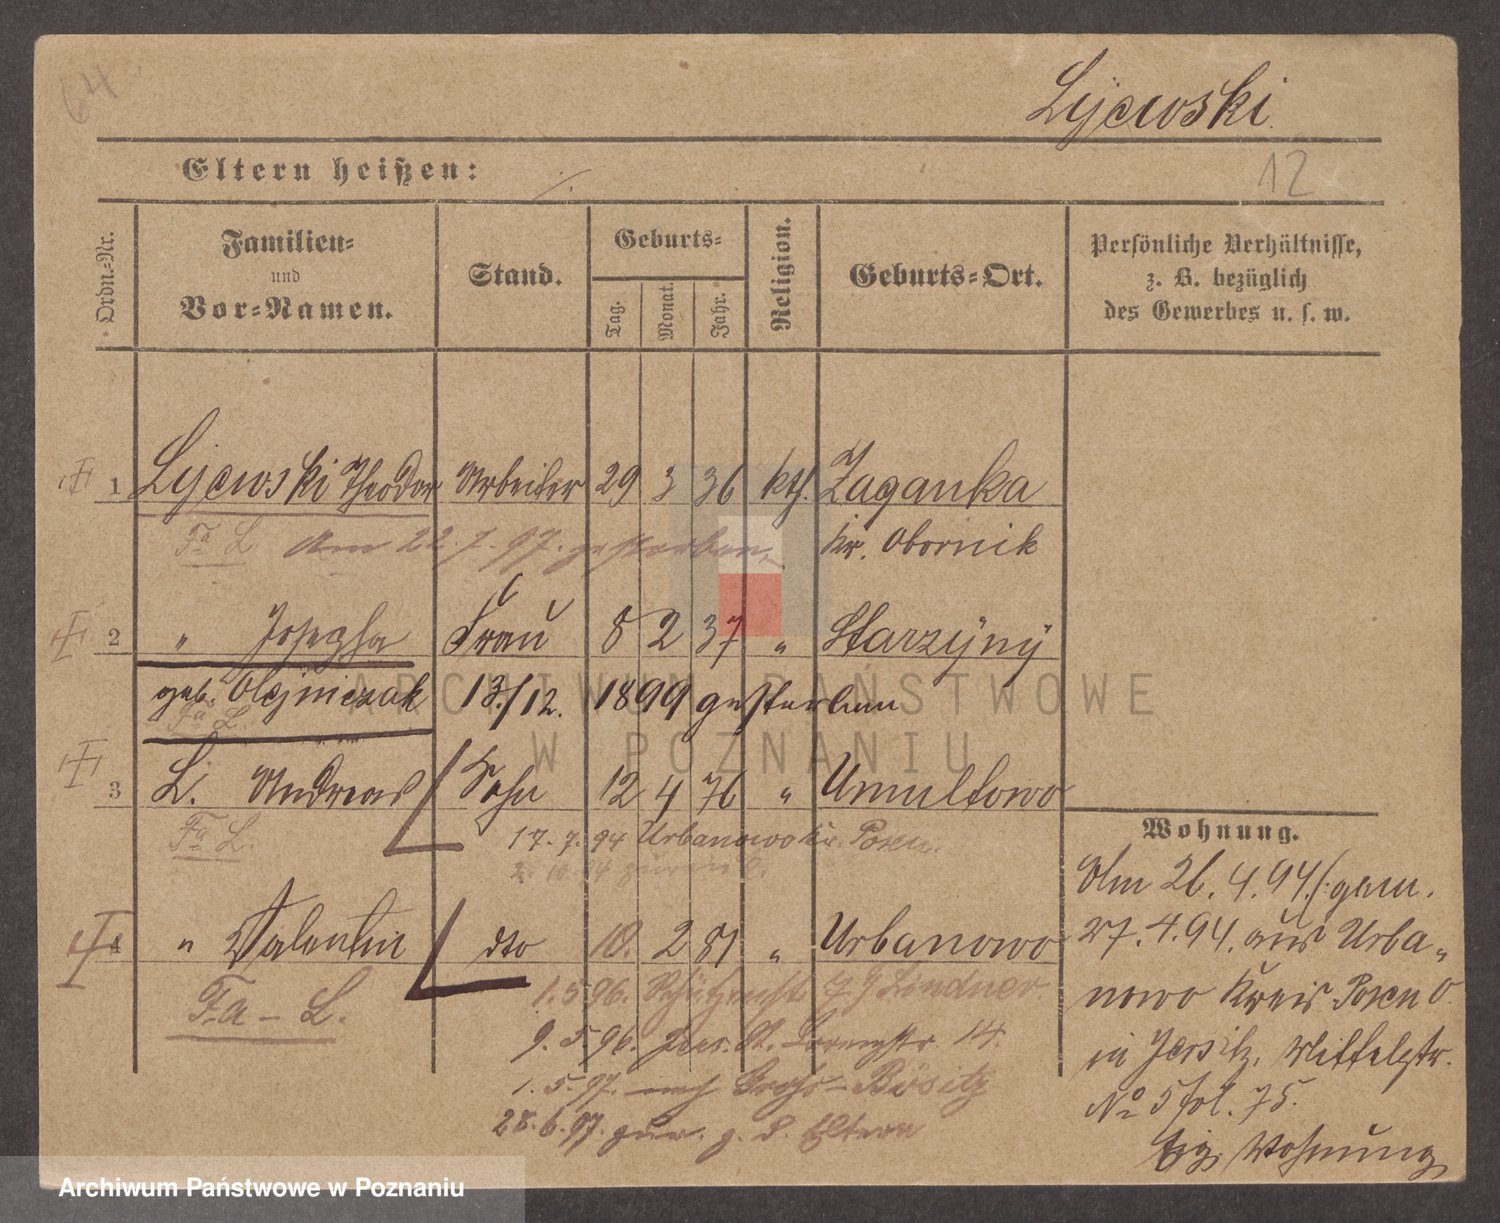 64
Lijewski.
Eltern heißen: ./.
12
Ordn.-Nr.
Familien- und Vor-Namen.
Stand.
Geburts-
Tag.
Monat.
Jahr.
Religion.
Geburts-Ort.
Persönliche Verhältnisse, z. B. bezüglich des Gewerbes u. s. w.
1 Lijewski Theodor Arbeiter 29 3 36 kth. Zaganka
Fa L. Am 22.7.97. gestorben. Kr. Obornik
2 " Josepha Frau 8 2 37 " Starzÿnÿ
geb. Olejniczak 13./12. 1899 gestorben
Fa L.
3 L. Andreas Sohn 12 4 76 " Umultowo
Fa L. 17.7.94 Urbanowo Kr. Posen.
zurück.
4 " Valentin dto 10. 2 81 " Urbanowo
Fa – L. 1.5.96. Lindner.
9.5.96. St. 14.
1.5.97. nach Groß-
28.6.97. zur. z. d. Eltern
Wohnung.
Am 26.4.94. (: gem.
27.4.94. aus Urba-
nowo Kreis Posen O.
in Jersitz, Mittelstr.
No 5 fol. 75.
Eig. Wohnung
ARCHIWUM PAŃSTWOWE
W POZNANIU
Archiwum Państwowe w Poznaniu